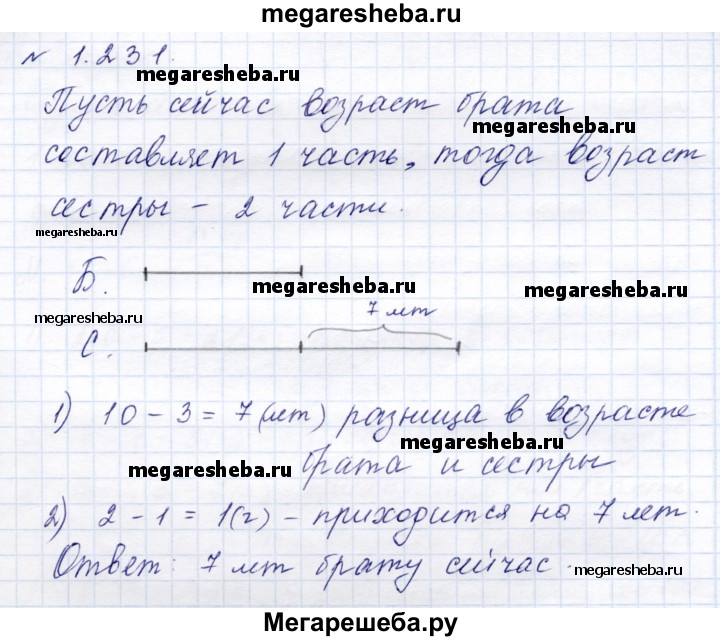 megaresheba.ru
№ 1.231.
megaresheba.ru
Пусть сейчас возраст брата
megaresheba.ru
составляет 1 часть, тогда возраст
сестры – 2 части.
megaresheba.ru
Б.
megaresheba.ru
megaresheba.ru
megaresheba.ru
7 лет
С.
1) 10 – 3 = 7 (лет) разница в возрасте
megaresheba.ru
megaresheba.ru
брата и сестры
2) 2 – 1 = 1(г) – приходится на 7 лет.
Ответ: 7 лет брату сейчас.
megaresheba.ru
Мегарешеба.ру